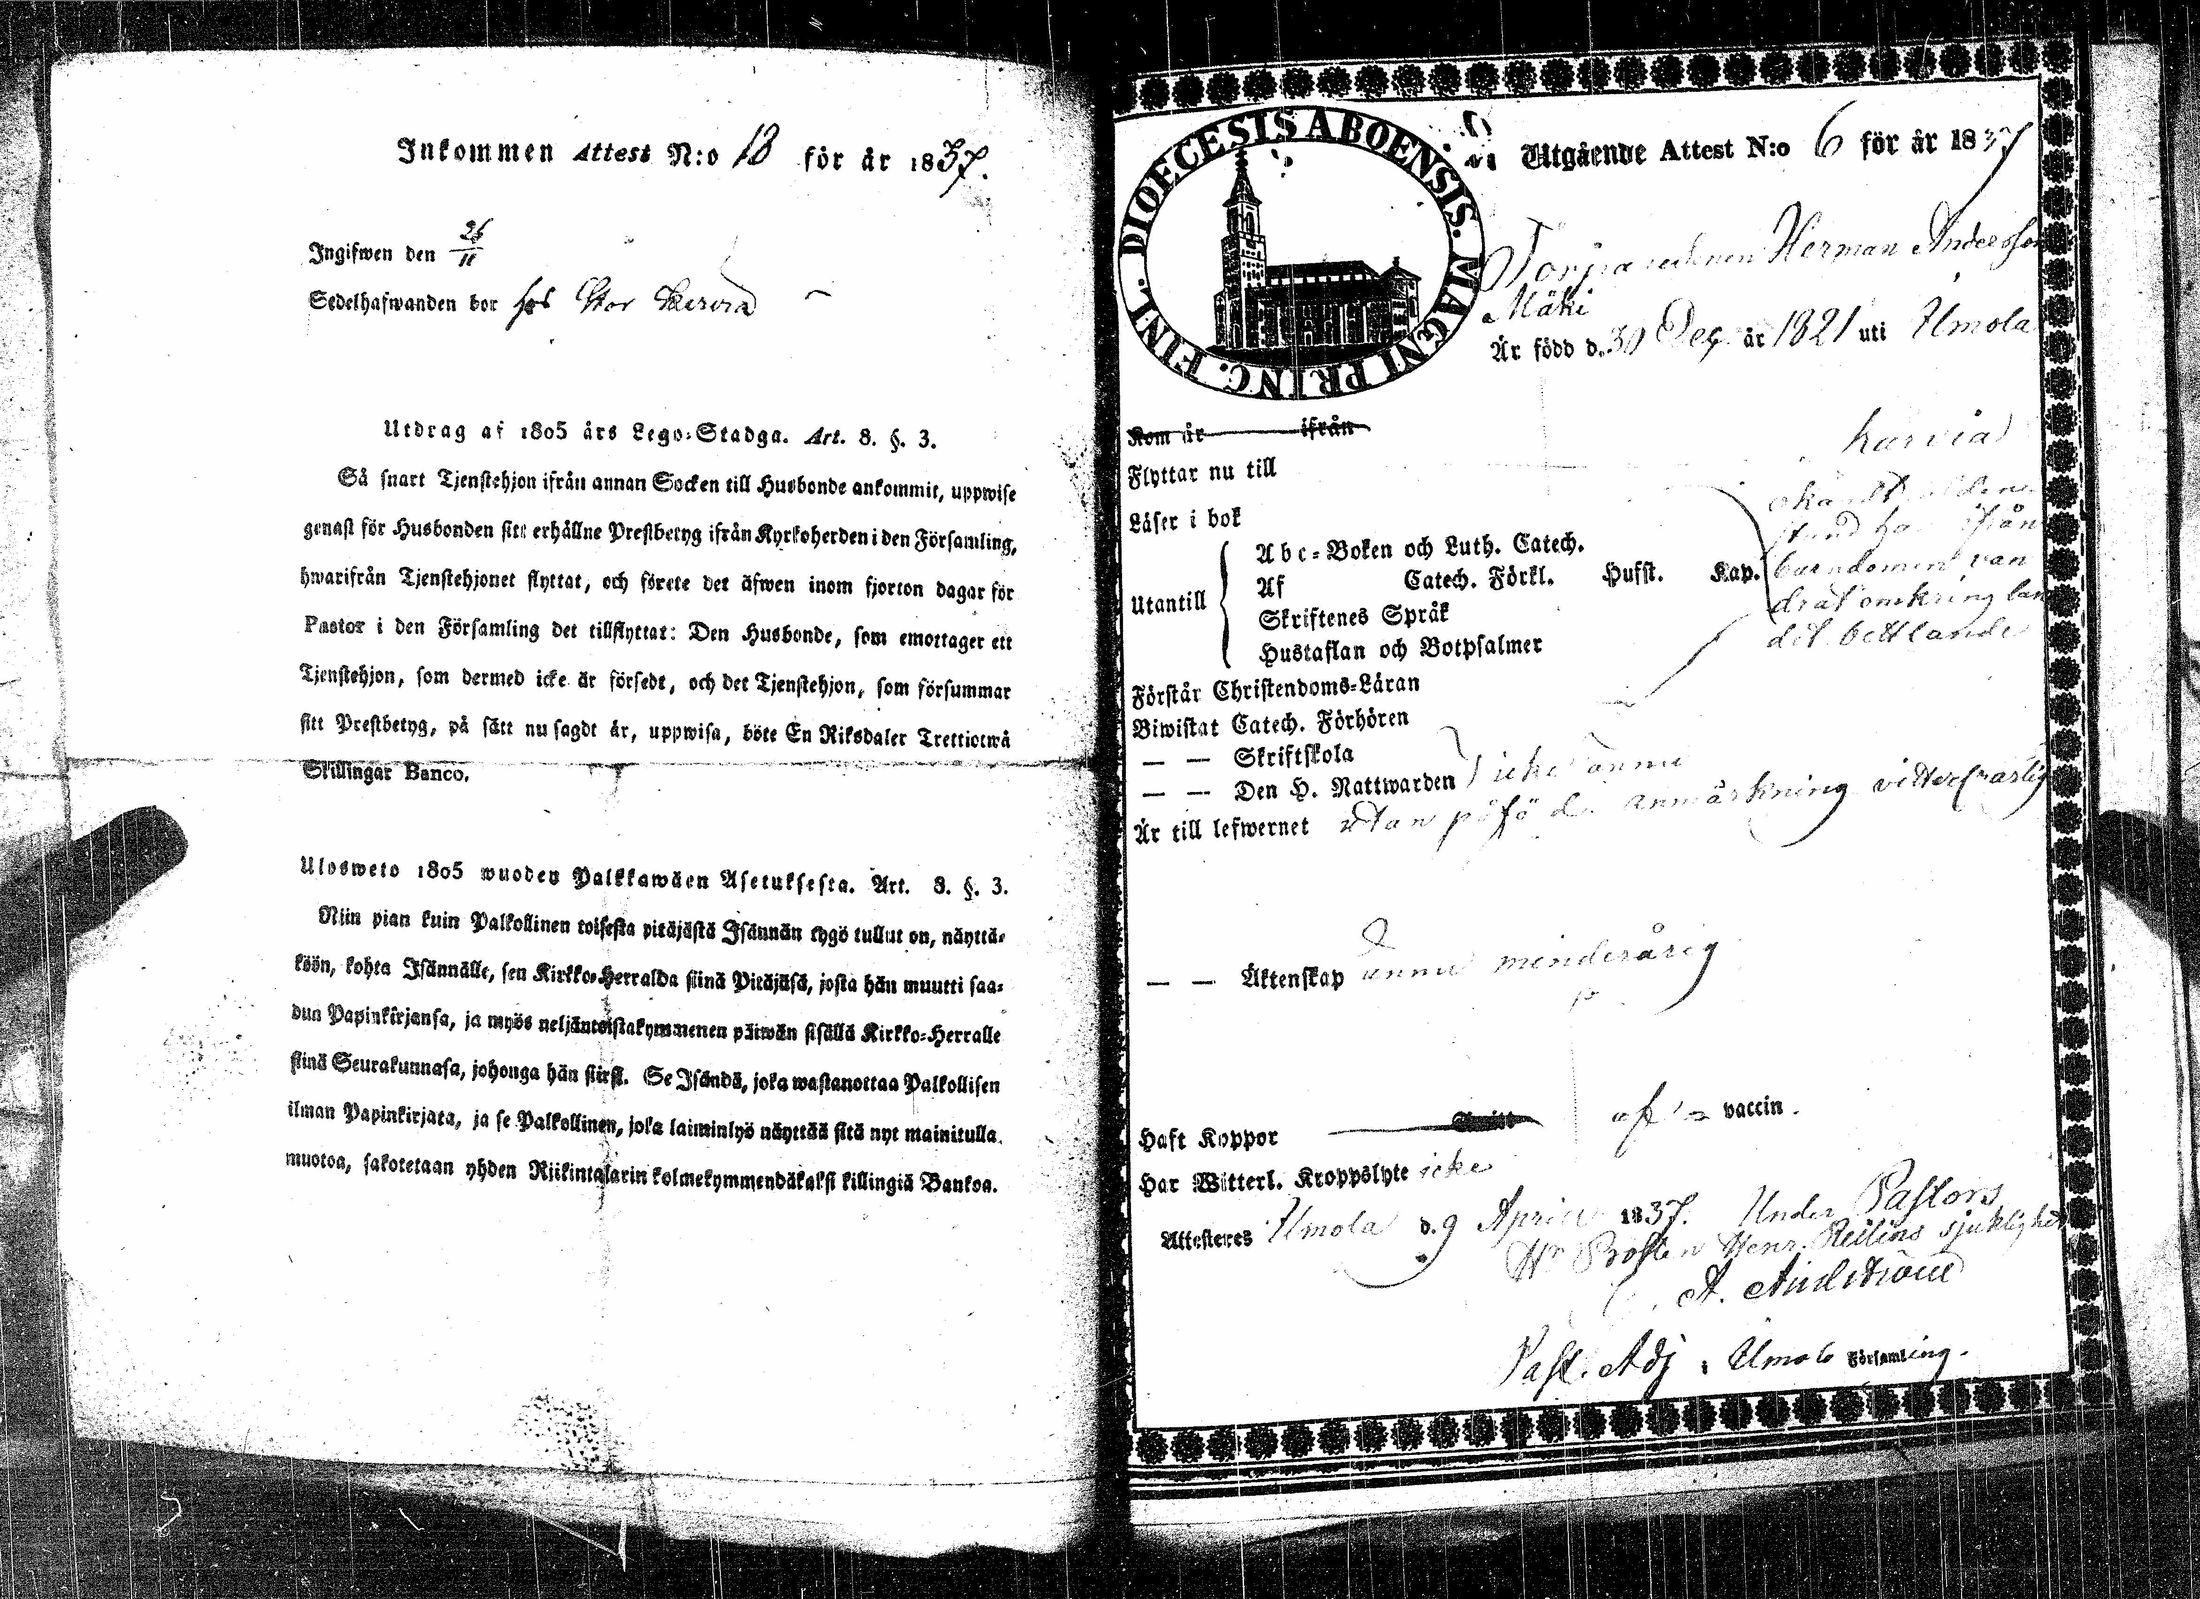 Inkommen Attest N:o 18 för år 1837.
Ingifwen den 26/11
Sedelhafwanden bor hos Stor
Utdrag af 1805 års Lego-Stadga. Art. 8. §. 3.
Så snart Tjenstehjon ifrån annan Socken till Husbonde ankommit, uppwise
genast för Husbonden sitt erhållne Prestbetyg ifrån Kyrkoherden i den Församling,
hwarifrån Tjenstehjonet flyttat, och förete det äfwen inom fjorton dagar för
Pastor i den Församling det tillflyttat: Den Husbonde, som emottager ett
Tjenstehjon, som dermed icke är försedt, och det Tjenstehjon, som försummar
sitt Prestbetyg, på sätt nu sagdt är, uppwisa, böte En Riksdaler Trettiotwå
Skillingar Banco.
Ulosweto 1805 wuoden Palkkawäen Asetuksesta. Art. 8. §. 3.
Niin pian kuin Palkollinen toisesta pitäjästä Isännän tygö tullut on, näyttä-
köön, kohta Isännälle, sen Kirkko-Herralda siinä Pitäjäsä, josta hän muutti saa-
dun Papinkirjansa, ja myös neljäntoistakymmenen päiwän sisällä Kirkko-Herralle
siinä Seurakunnasa, johonga hän siirsi. Se Isändä, joka wastanottaa Palkollisen
ilman Papinkirjata, ja se Palkollinen, joka laiminlyö näyttää sitä nyt mainitulla
muotoa, sakotetaan yhden Riikintalarin kolmekymmendäkaksi killingiä Bankoa.
DIOECESIS ABOENSIS. MAGNI PRINC. FINL.
Utgående Attest N:o 6 för år 1837
Herman Andersson
Mäki
Är född d. 30 Dec. år 1821 uti Urnola
Kom år ifrån
Karvia
Flyttar nu till
Läser i bok
Utantill
Abc-Boken och Luth. Catech.
Af Catech. Förkl. Husst. Kap.
Skriftenes Språk
Hustaflan och Botpsalmer
ifrån
barndomen van
drat omkring lan
det bettlande
Förstår Christendoms-Läran
Biwistat Catech. Förhören
— — Skriftskola
— — Den H. Nattwarden
icke ännu
Är till lefwernet utan anmärkning vitterfrägdig
— — Äktenskap ännu minderårig
Haft Koppor vaccin.
Har Witterl. Kroppslyte icke
Attesteres d. 9 April 1837. Under Pastors
Hr Prosten Henr. sjuklighet
A.
Past. Adj. i Församling.